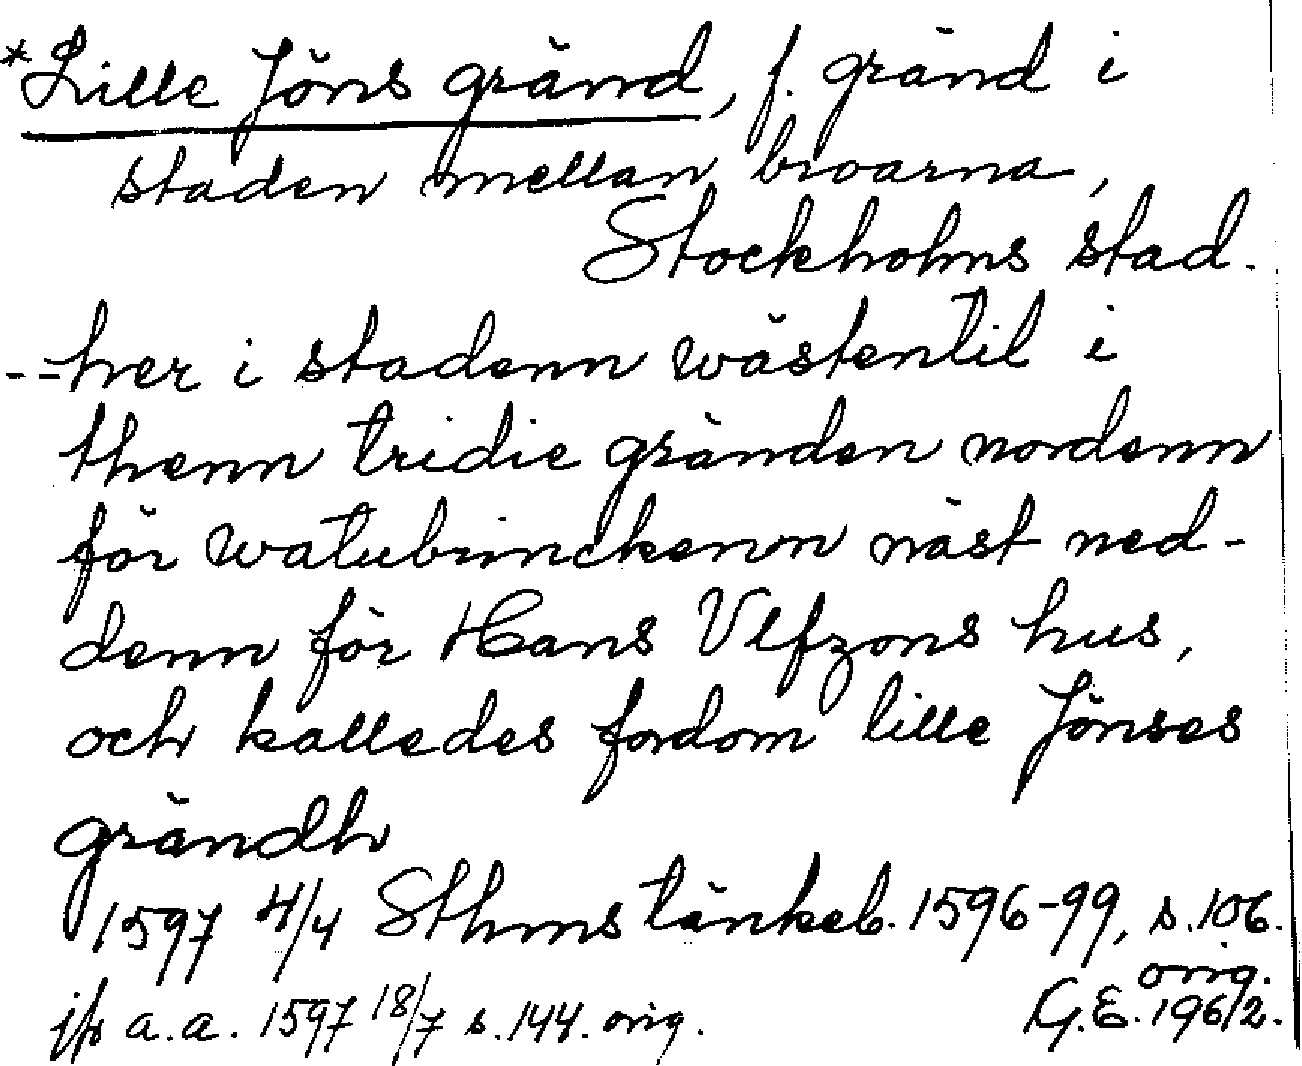 *Lille Jöns gränd, f. gränd i
staden mellan broarna,
Stockholms stad.
--her i stadenn wästentil i
thenn tridie gränden nordenn
för watubrinckenn näst ned-
denn för Hans Vlfzons hus,
och kalledes fordom lille Jönses
grändh
1597 4/4 Sthms tänkeb. 1596-99, s. 106.
orig.
jfr a.a. 1597 18/7 s. 144. orig.
G.E. 1962.